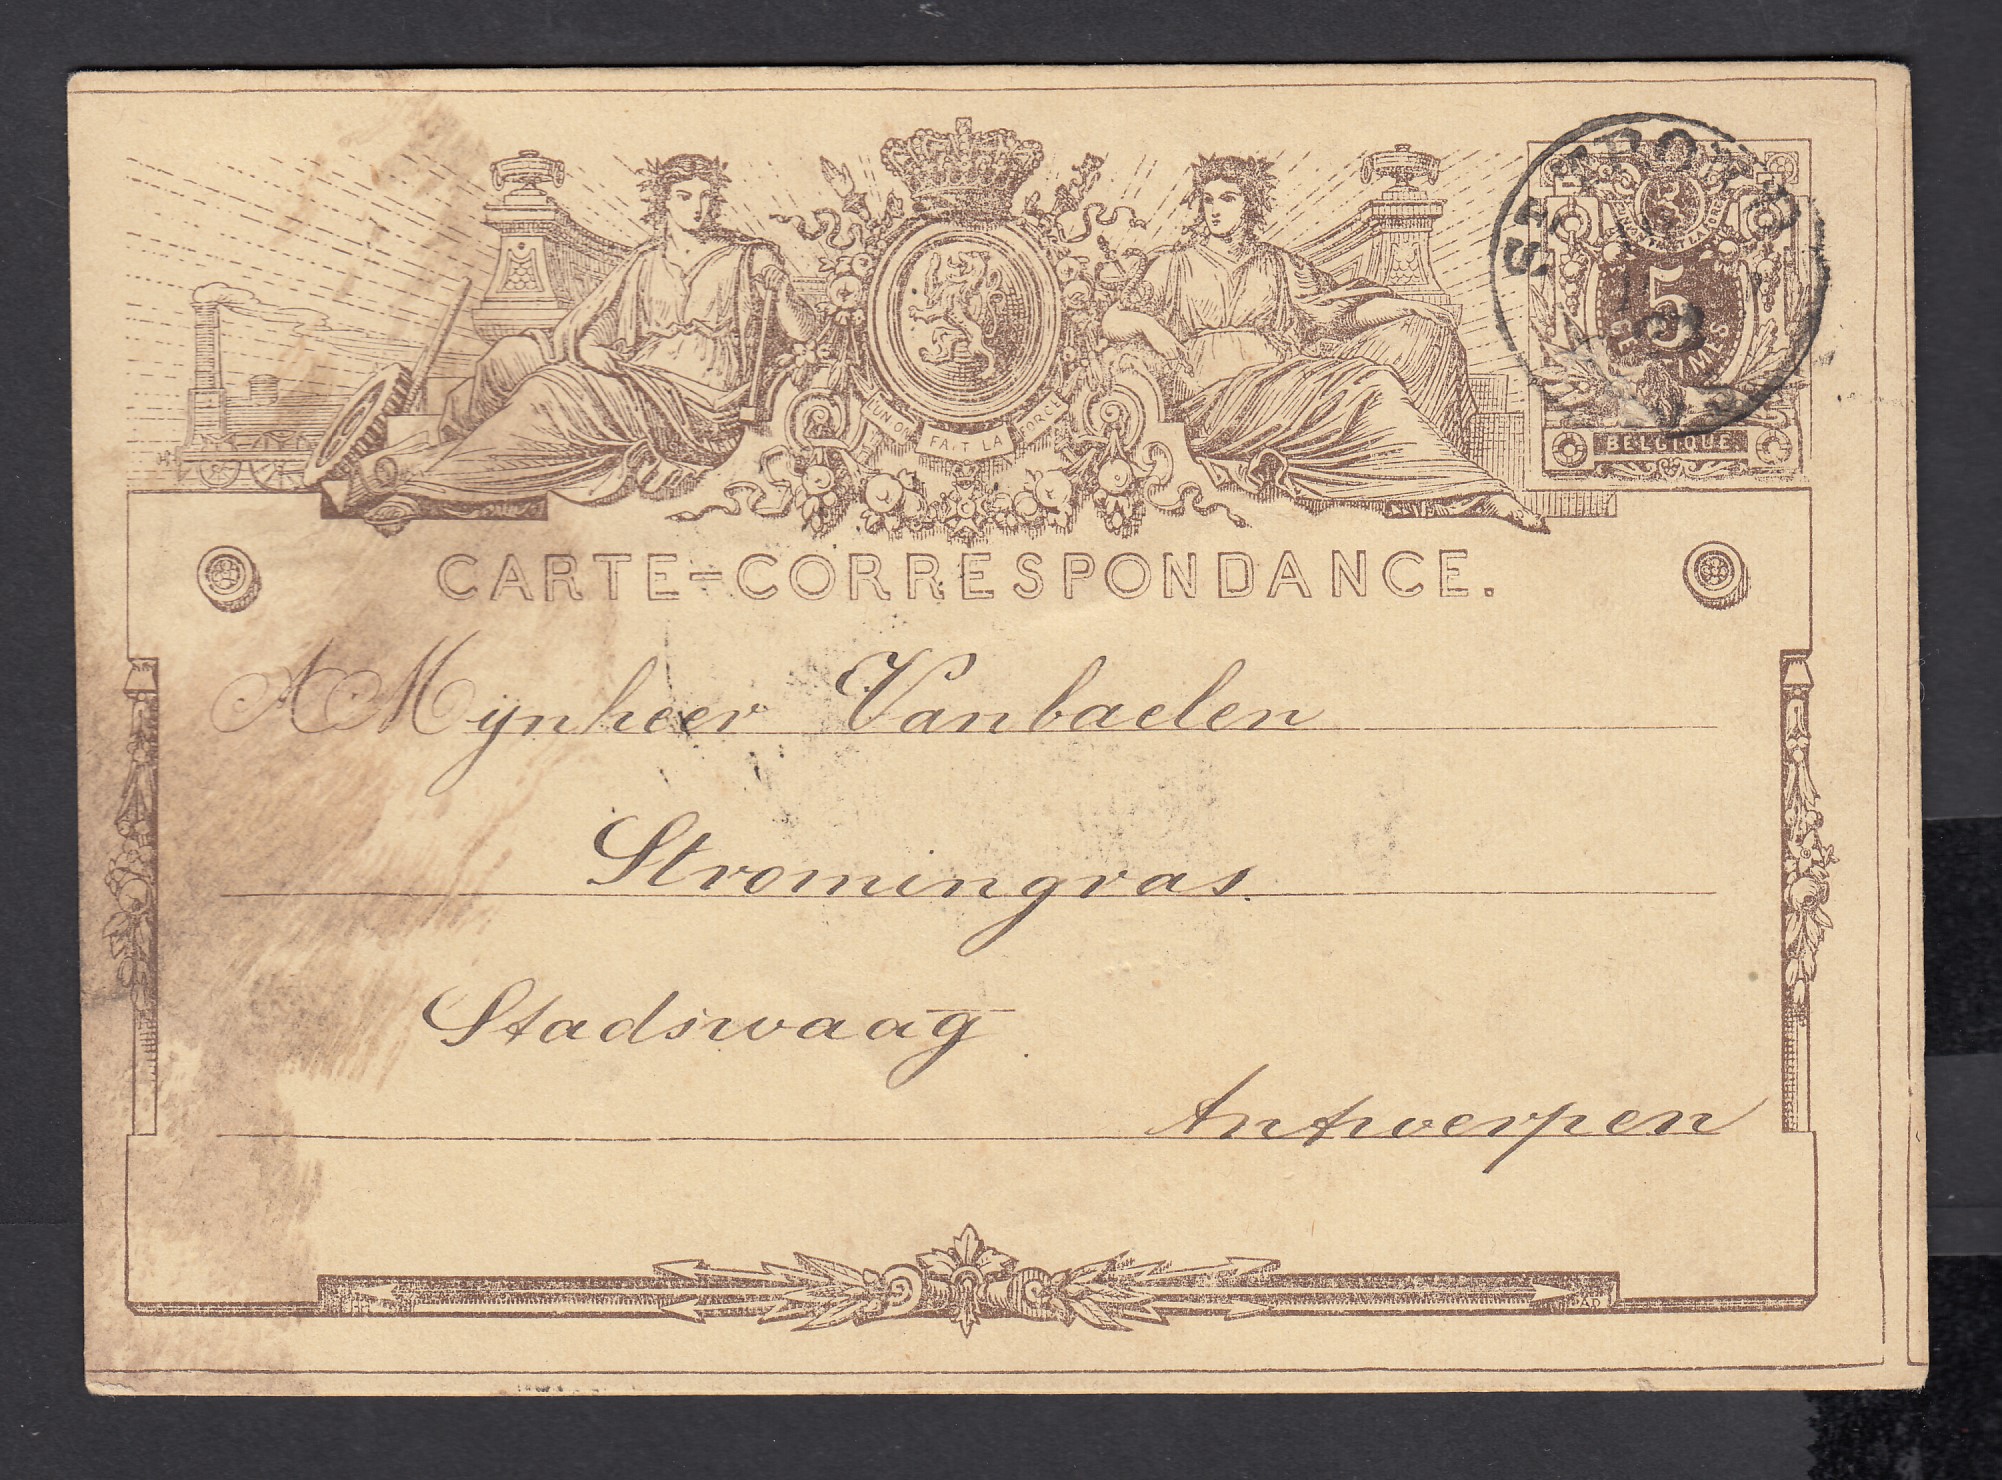 L'UNION FAIT LA FORCE
5
BELGIQUE
CARTE-CORRESPONDANCE.
A Mynheer Vanbaelen
Stromingras
Stadswaag
Antwerpen